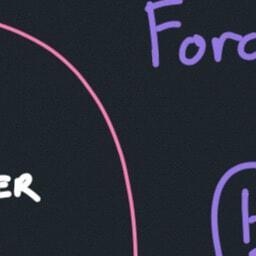 Forc
ER